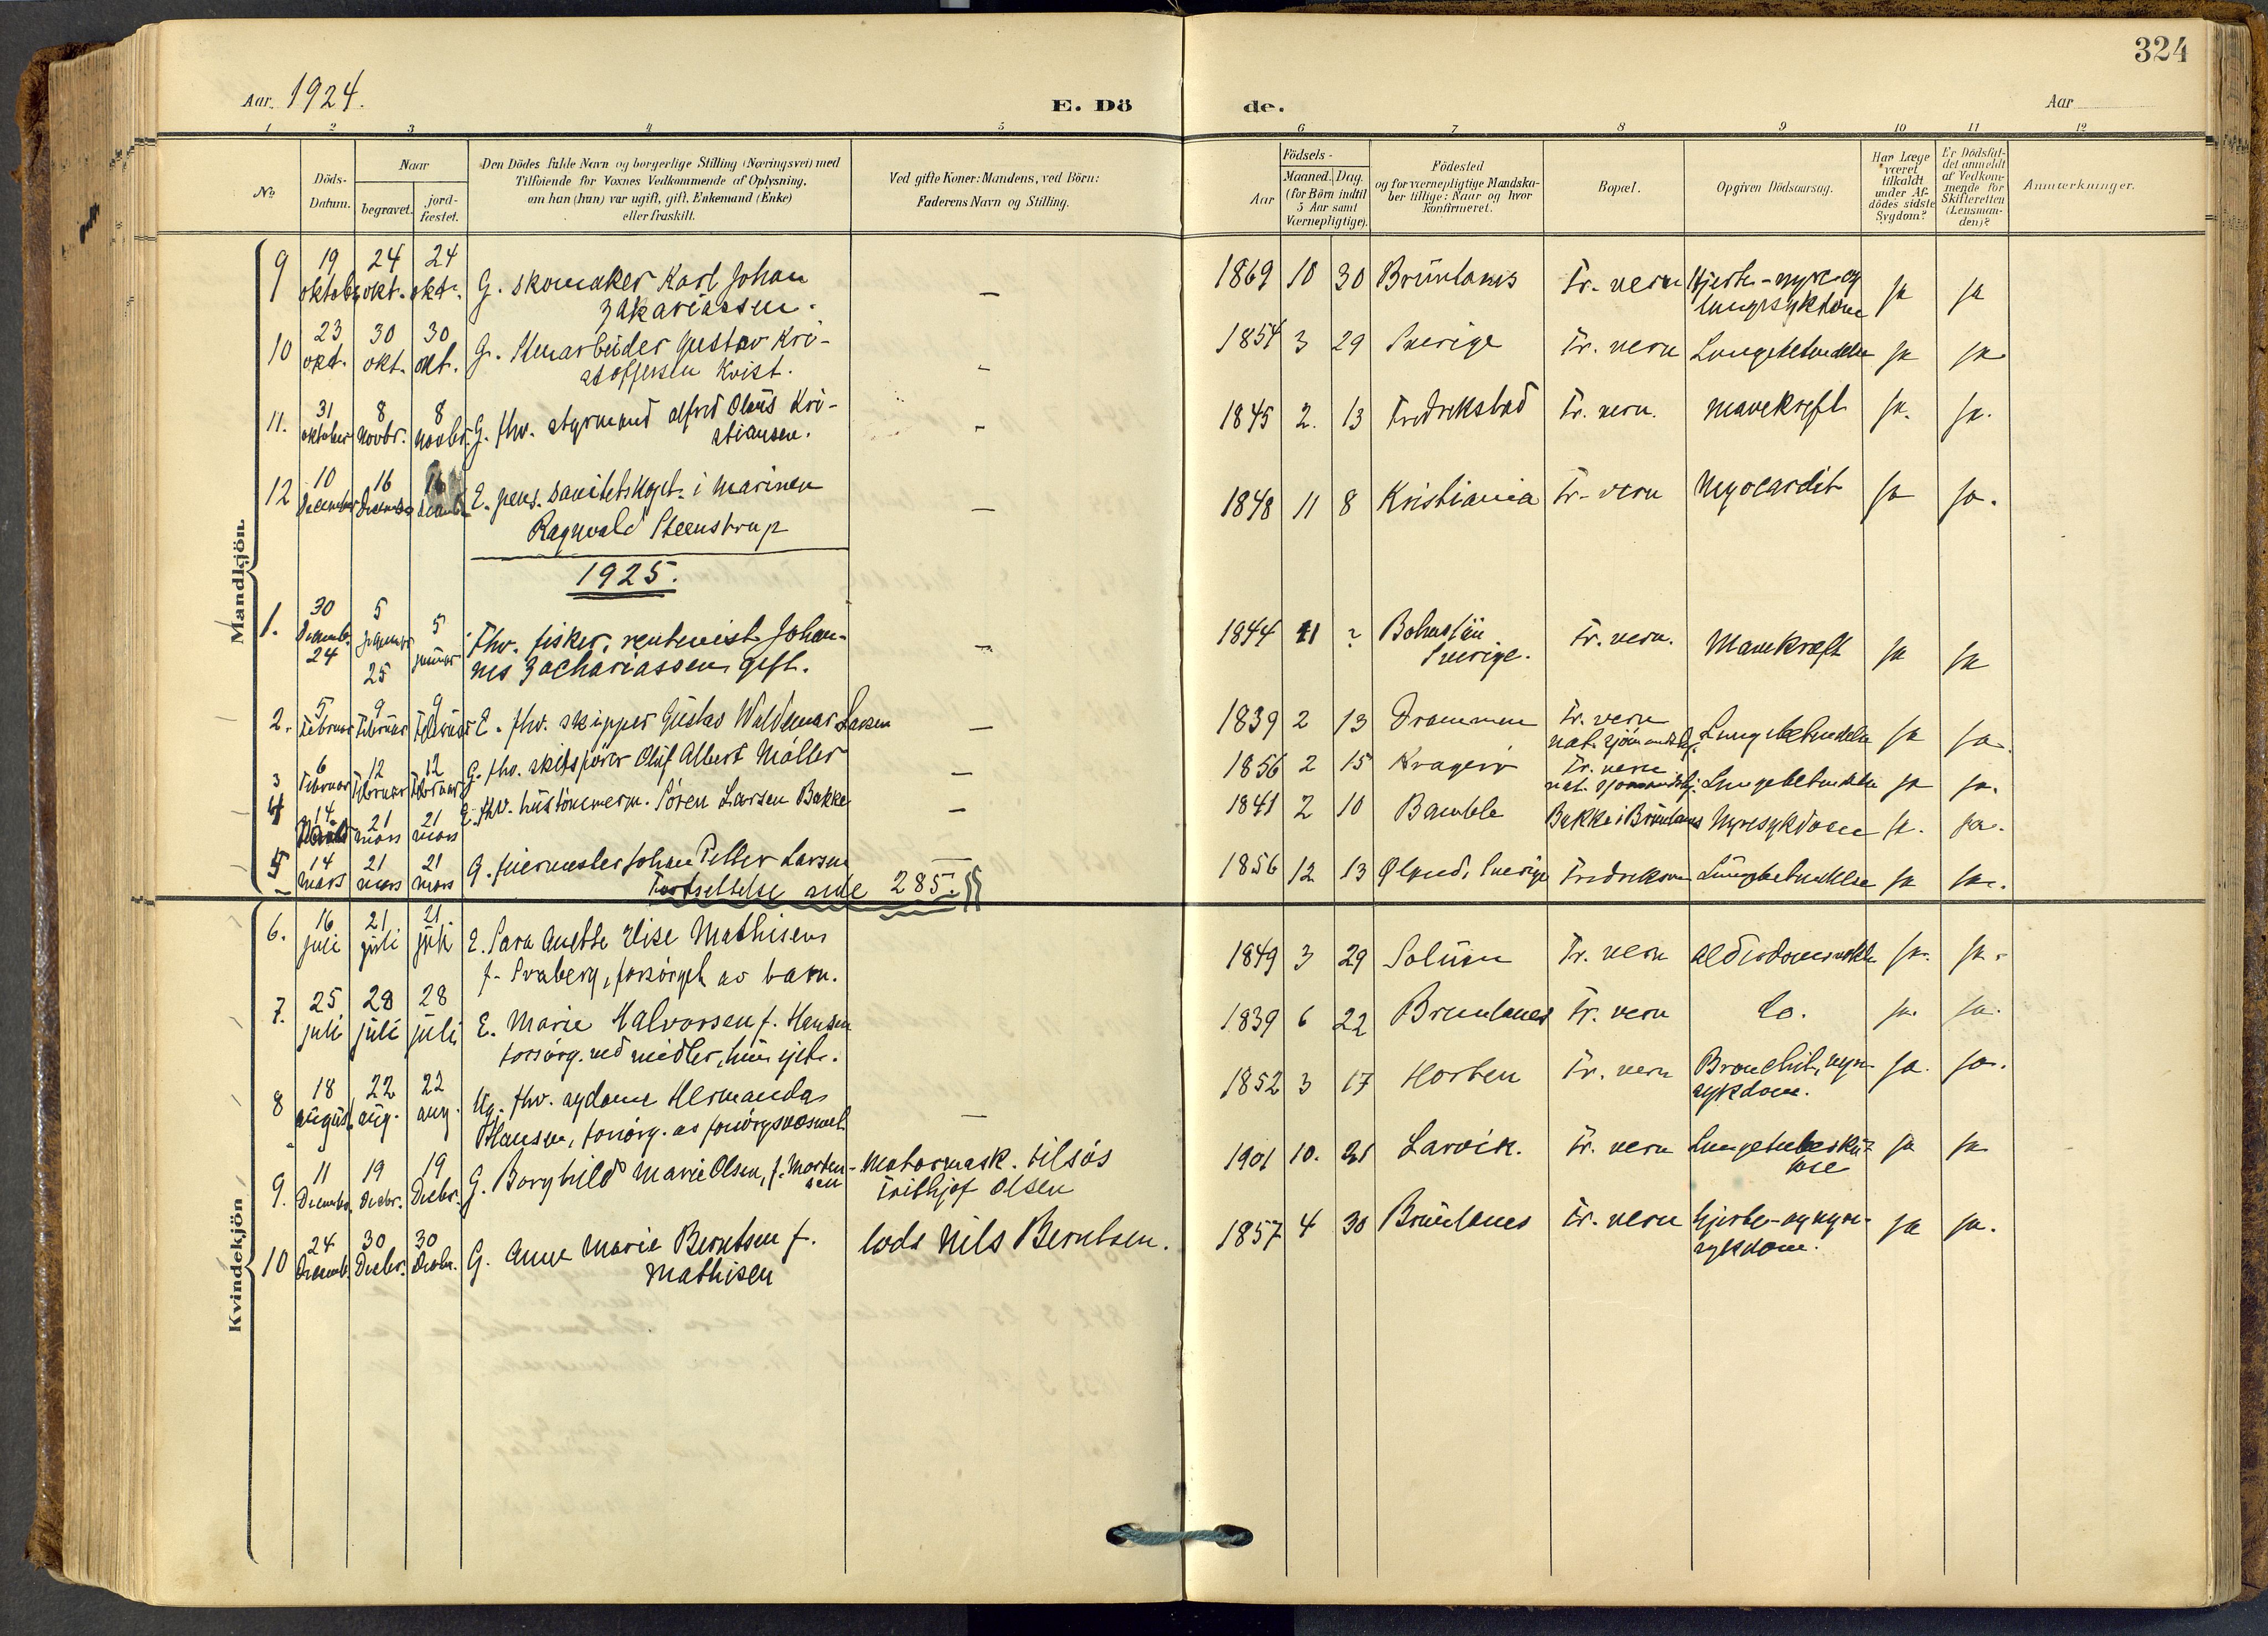 324
Aar 1924.
E. Dö de.
Aar
1 2 3 4 5 6 7 8 9 10 11 12
No
Döds-
Datum.
Naar
begravet.
jord-
fæstet.
Den Dödes fulde Navn og borgerlige Stilling (Næringsvei) med
Tilföiende for Voxnes Vedkommende af Oplysning,
om han (hun) var ugift, gift, Enkemand (Enke)
eller fraskilt.
Ved gifte Koner: Mandens, ved Börn:
Faderens Navn og Stilling.
Födsels-
Aar
Maaned. Dag.
(for Börn indtil
5 Aar samt
Værnepligtige).
Födested
og for værnepligtige Mandska-
ber tillige: Naar og hvor
konfirmeret.
Bopæl.
Opgiven Dödsaarsag.
Har Læge
været
tilkaldt
under Af-
dödes sidste
Sygdom?
Er Dödsfal-
det anmeldt
af Vedkom-
mende for
Skifteretten
(Lensman-
den)?
Anmærkninger.
Mandkjön
9 19 24 24
oktob. okt. okt. G. skomaker Karl Johan
Zakariassen. — 1869 10 30 Brunlanes Fr. vern Hjerte-nyre-og
lungesykdom ja ja
10 23 30 30
okt. okt. okt. G. Stenarbeider Gustav Kri-
stoffersen Kvist. - 1854 3 29 Sverige Fr. vern Lungebetendelse ja ja
11. 31 8 8
oktober novbr. novbr. G. fhv. styrmand Alfred Olaus Kri-
stiansen. - 1845 2. 13 Fredrikstad Fr. vern. mavekreft ja. ja.
12 10 16 16
December December E. pens. sanitetskapt. i marinen
Ragnvald Steenstrup — 1848 11 8 Kristiania Fr. vern Myocardit ja ja.
1925.
1. 30 5 5
Decemb. januar januar
24 25
Fhv. fisker, rentenist Johan-
nes Zachariassen, gift. - 1844 11 ? Bohuslän
Sverige. Fr. vern. Mavekræft ja ja
2. 5 9 9
Februar Februar Februar E. fhv. skipper Gustav Waldemar Larsen — 1839 2 13 Drammen Fr. vern
nat. sjömandshj. Lungebetendelse ja ja.
3 6 12 12
Februar Februar Februar G. fhv. skibsfører Oluf Albert Möller — 1856 2 15 Kragerö Fr. vern
nat. sjömandshj. Lungebetendelse ja ja.
4 14 21 21
mars mars E. fhv. hustömmerm. Søren Larsen Bakke — 1841 2 10 Bamble Bakke i Brunlanes Nyresykdom ja. ja.
5 14 21 21
mars mars mars G. feiermester Johan Petter Larsen — 1856 12 13 Ølund, Sverige Fredriksvern Lungebetendelse ja ja.
Fortsettelse side 285.
Kvindekjön
6. 16 21 21.
juli juli juli E. Sara Anette Elise Mathisen
f. Svaberg, forsörget av barn. 1849 3 29 Solum Fr. vern ja. ja.
7. 25 28 28
juli juli juli E. Marie Halvorsen f. Hansen
forsörg. ved midler, hun eiet. 1839 6 22 Brunlanes Fr. vern do. ja. ja.
8 18 22 22
august aug. aug. Ug. fhv. sydame Hermanda
Hansen, forsörg. av forsörgsvæsenet — 1852 3 17 Horten Fr. vern Bronchit, nyre-
sykdom. ja. ja.
9. 11 19 19
December Decbr. Decbr. G. Borghild Marie Olsen, f. Morten-
sen Motormask. tilsös
Frithjof Olsen 1901 10. 21 Larvik. Fr. vern Lungetuberku-
lose ja ja
10 24 30 30
Decemb. Decbr. Decbr. G. Anne Marie Berntsen f.
Mathisen lods Nils Berntsen. 1857 4 30 Brunlanes Fr. vern hjerte- og nyre-
sykdom. ja ja.